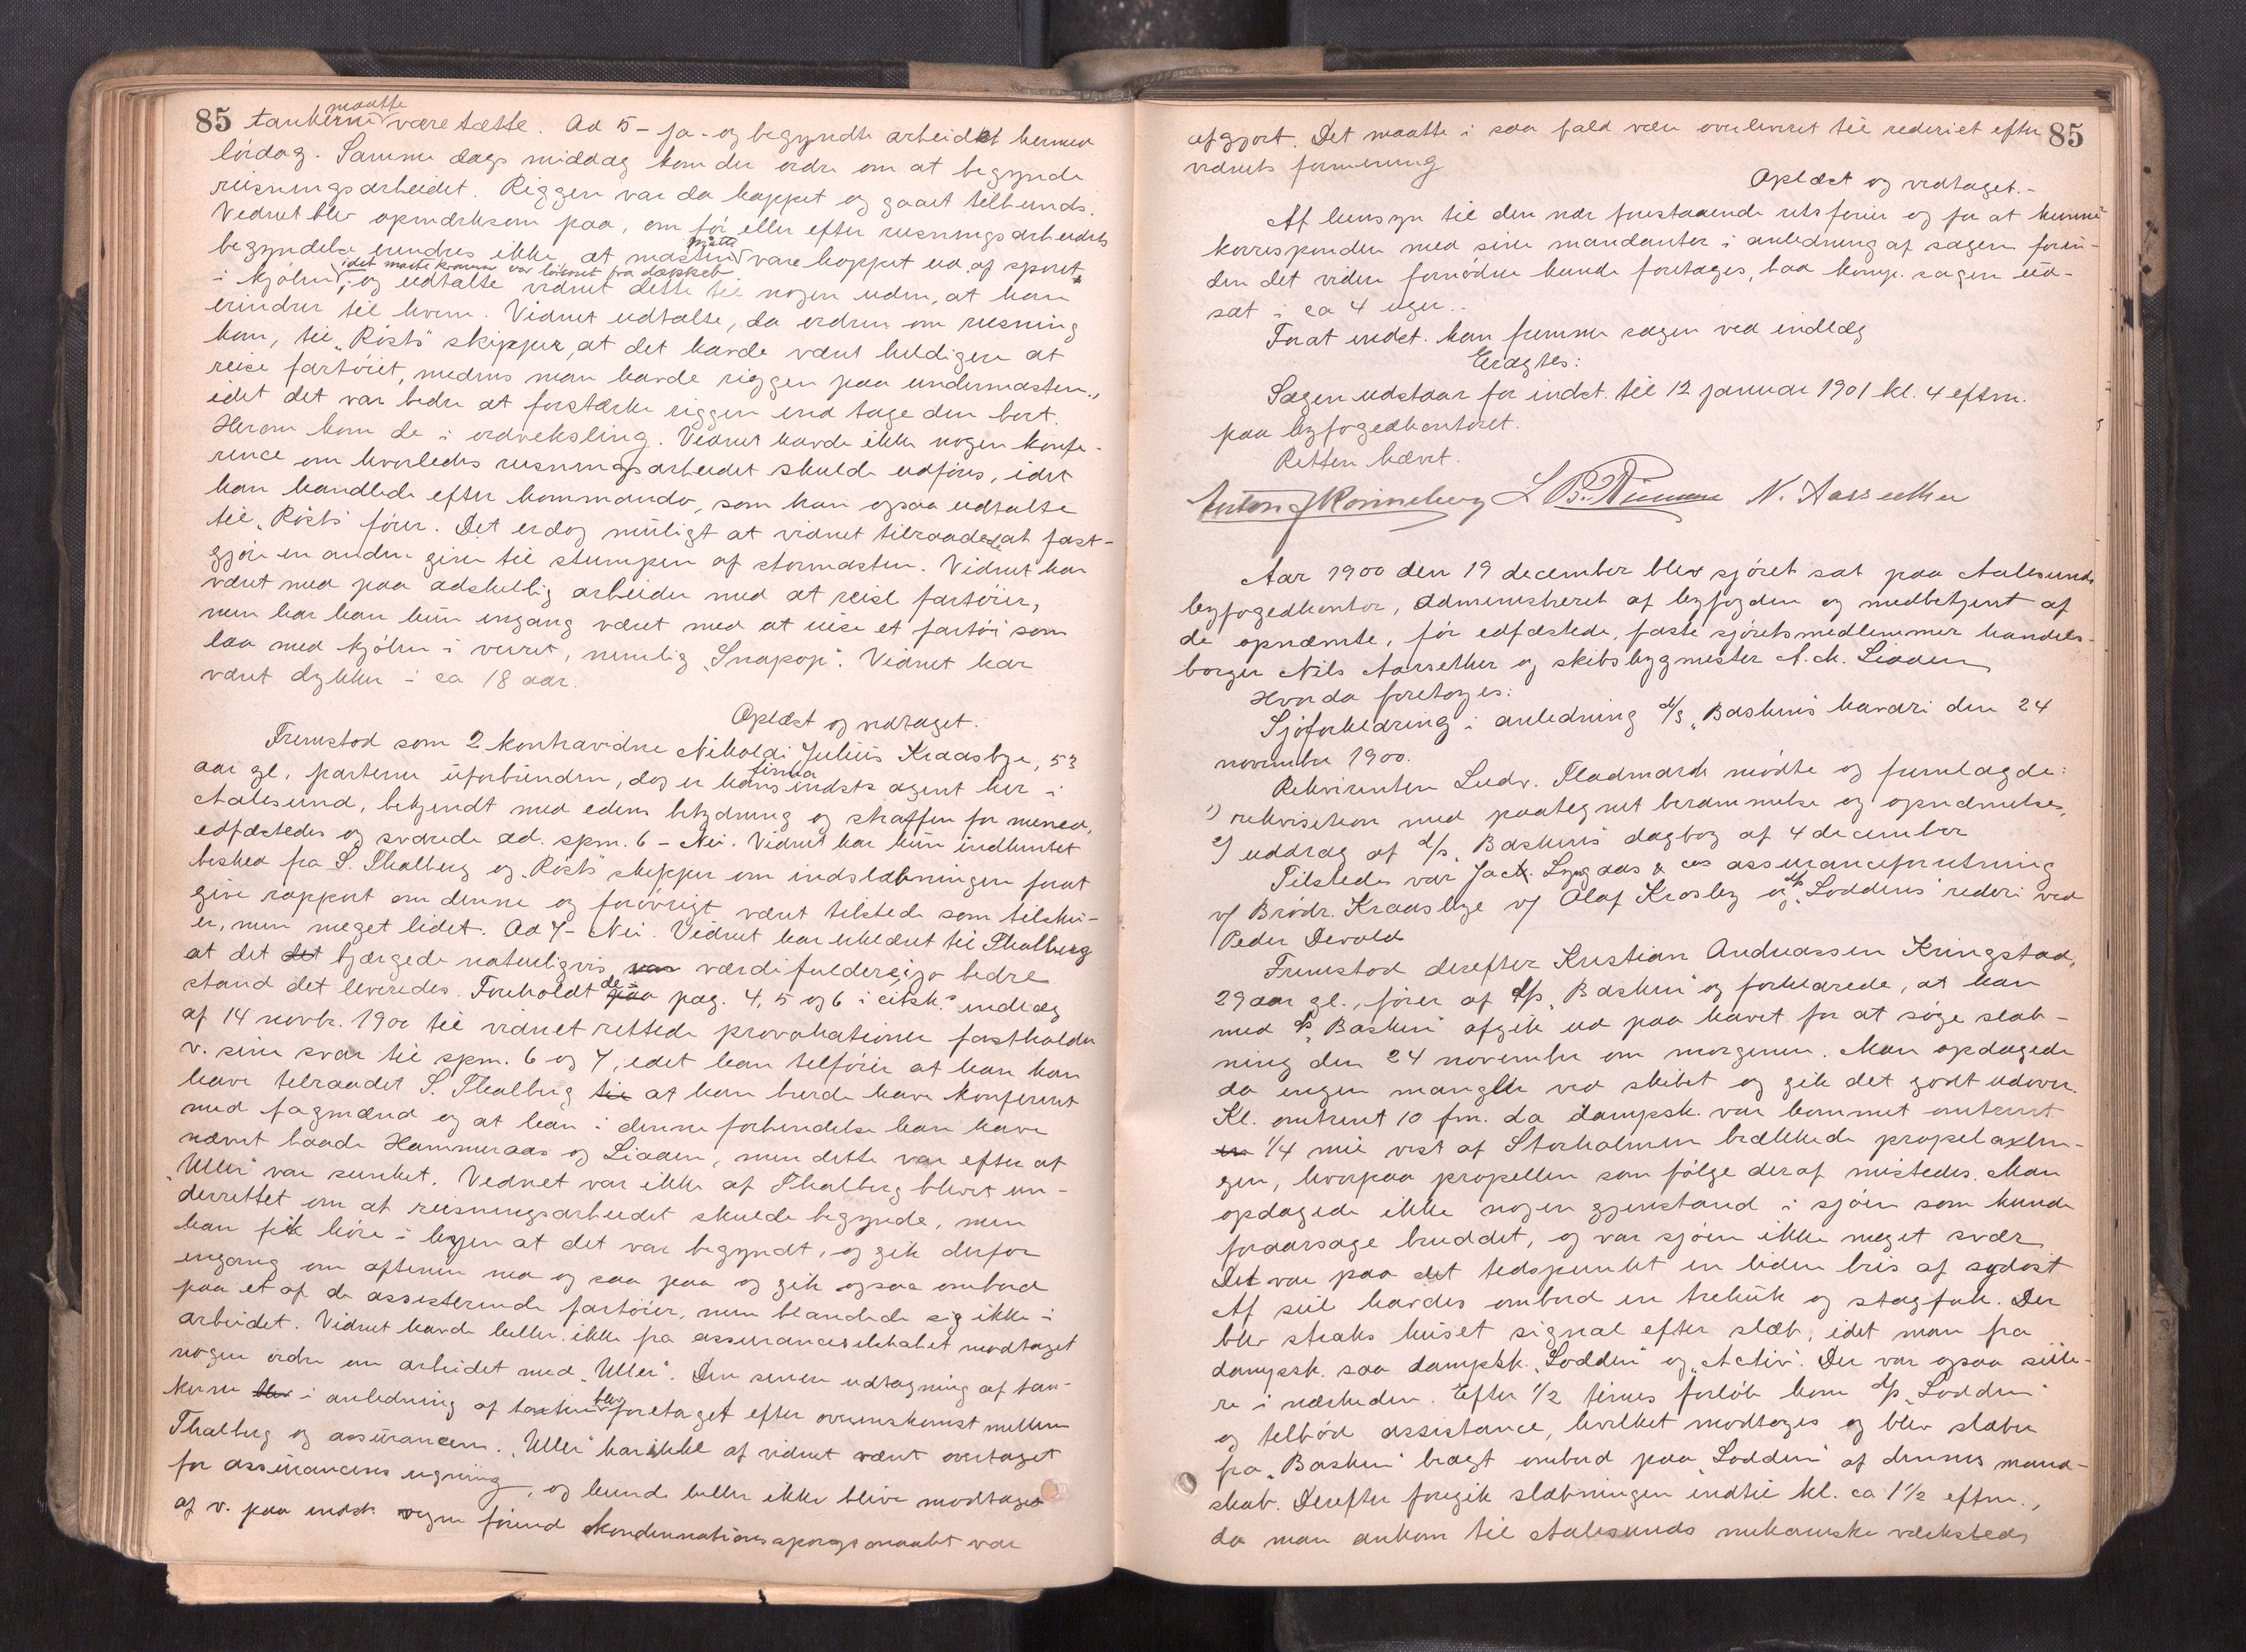 85 tankerne maatte være tætte. Ad 5 - Ja - og begyndte arbeidet hermed
lördag. Samme dags middag kom der ordre om at begynde
reisningsarbeidet. Riggen var da kappet og gaaet tilbunds.
Vidnet blev opmærksom paa, om för eller efter reisningsarbeidets
begyndelse erindres ikke at masten maatte være hoppet ud af sporet
i kjölen, idet mastekraven var løsnet fra dækket, og udtalte vidnet dette til nogen uden, at han
erindrer til hvem. Vidnet udtalte, da ordren om reisning
kom, til „Rösts" skipper, at det havde været heldigere at
reise fartöiet, medens man havde riggen paa undermasten,
idet det var bedre at forstærke riggen end tage den bort.
Herom kom de i ordveksling. Vidnet havde ikke nogen konfe-
rence om hvorledes reisningsarbeidet skulde udföres, idet
han handlede efter kommando, som han ogsaa udtalte
til „Rösts" förer. Det er dog muligt at vidnet tilraadede at fast-
gjöre en anden giver til stumpen af stormasten. Vidnet har
været med paa adskillig arbeider med at reise fartöier,
men har han kun engang været med at reise et fartöi som
laa med kjölen i veiret, nemlig „Snapop". Vidnet har
været dykker i ca 18 aar.
Oplæst og vedtaget.
Fremstod som 2 kontravidne Nikolai Julius Kraasbye, 53
aar gl., parterne uforbunden, dog er hans firma indsts agent her i
Aalesund, bekjendt med edens betydning og straffen for mened,
edfæstedes og svarede ad. spm. 6 - Nei. Vidnet har kun indhentet
besked fra S. Thalberg og „Rösts" skipper om indslæbningen forat
give rapport om denne og forövrigt været tilstede som tilsku-
er, men meget lidet. Ad 7 - Nei. Vidnet har erklæret til Thalberg
at det det bjærgede naturligvis var værdifuldere, i jo bedre
stand det leveredes. Foreholdt de paa pag. 4, 5 og 6 i citsk.s indlæg
af 14 novbr. 1900 til vidnet rettede provokationer fastholder
v. sine svar til spm. 6 og 7, idet han tilföier at han kan
have tilraadet S. Thalberg til at han burde have konfereret
med fagmænd og at han i denne forbindelse kan have
nævnt baade Hammeraas og Liaaen, men dette var efter at
„Uller" var sunket. Vidnet var ikke af Thalberg blevet un-
derrettet om at reisningsarbeidet skulde begynde, men
han fik höre i byen at det var begyndt, og gik derfor
engang om aftenen ned og saa paa og gik ogsaa ombord
paa et af de assisterende fartöier, men blandede sig ikke i
arbeidet. Vidnet havde heller ikke fra assuranceselskabet modtaget
nogen ordre om arbeidet med „Uller". Den senere udtagning af tan-
kerne blev i anledning af taxten blev foretaget efter overenskomst mellem
Thalberg og assurancen. „Uller" har ikke af vidnet været overtaget
for assurancens regning, og kunde heller ikke blive modtaget
af v. paa indst. vegne förend kondemnationsspörgsmaalet var
85
afgjort. Det maatte i saa fald være overleveret til rederiet efter
vidnets formening
Oplæst og vedtaget.-
Af hensyn til den nær forestaaende retsferier og for at kunne
korrespondere med sine mandanter i anledning af sagen foren-
den det videre fornödne kunde foretages, bad komp. sagen ud-
sat i ca 4 uger..
Forat indst. kan fremme sagen ved indlæg
Eragtes:
Sagen udstaar for indst. til 12 januar 1901 kl. 4 eftm.
paa byfogedkontoret.
Retten hævet.
Anton J Rönneberg N. Aarsether
Aar 1900 den 19 december blev sjöret sat paa Aalesunds
byfogedkontor, administreret af byfogden og medbetjent af
de opnæmte, för edfæstede, faste sjöretsmedlemmer handels-
borger Nils Aarsether og skibsbygmester N. M. Liaaen
Hvorda foretoges:
Sjöforklaring i anledning d/s „Baskens" havari den 24
november 1900.
Rekvirenten Ludv. Fladmark mödte og fremlagde:
1) rekvisition med paategnet berammelse og opnæmelse,
2) uddrag af d/s „Baskens" dagbog af 4 december
Tilstede var Jack. Lyngaas & ces assuranceforretning
v/ Brödr. Kraasbye v/ Olaf Krosby og d/s „Loddens" rederi ved
Peder Devold
Fremstod derefter Kristian Andreassen Kringstad,
29 aar gl., förer af d/s „Basken" og forklarede, at han
med d/s „Basken" afgik ud paa havet for at söge slæb-
ning den 24 november om morgenen. Man opdagede
da ingen mangler ved skibet og gik det godt udover.
Kl. omtrent 10 fm. da dampsk. var kommet omtrent
en 1/4 mil vest af Storholmen brækkede propelaxlin-
gen, hvorpaa propellen som fölge deraf mistedes. Man
opdagede ikke nogen gjenstand i sjöen som kunde
foraarsage bruddet, og var sjöen ikke meget svær
Det var paa det tidspunkt en liden bris af sydost
Af seil havdes ombord en trekuk og stagfok. Der
blev straks heiset signal efter slæb, idet man fra
dampsk. saa dampsk. „Lodden" og „Activ". Der var ogsaa seile-
re i nærheden. Efter 1/2 times forlöb kom d/s „Lodden"
og tilböd assistance, hvilket modtoges og blev slæber
fra „Basken" bragt ombord paa „Lodden" af dennes mand-
skab. Derefter foregik slæbningen indtil kl. ca 1 1/2 eftm.,
da man ankom til Aalesunds mekaniske værksteds